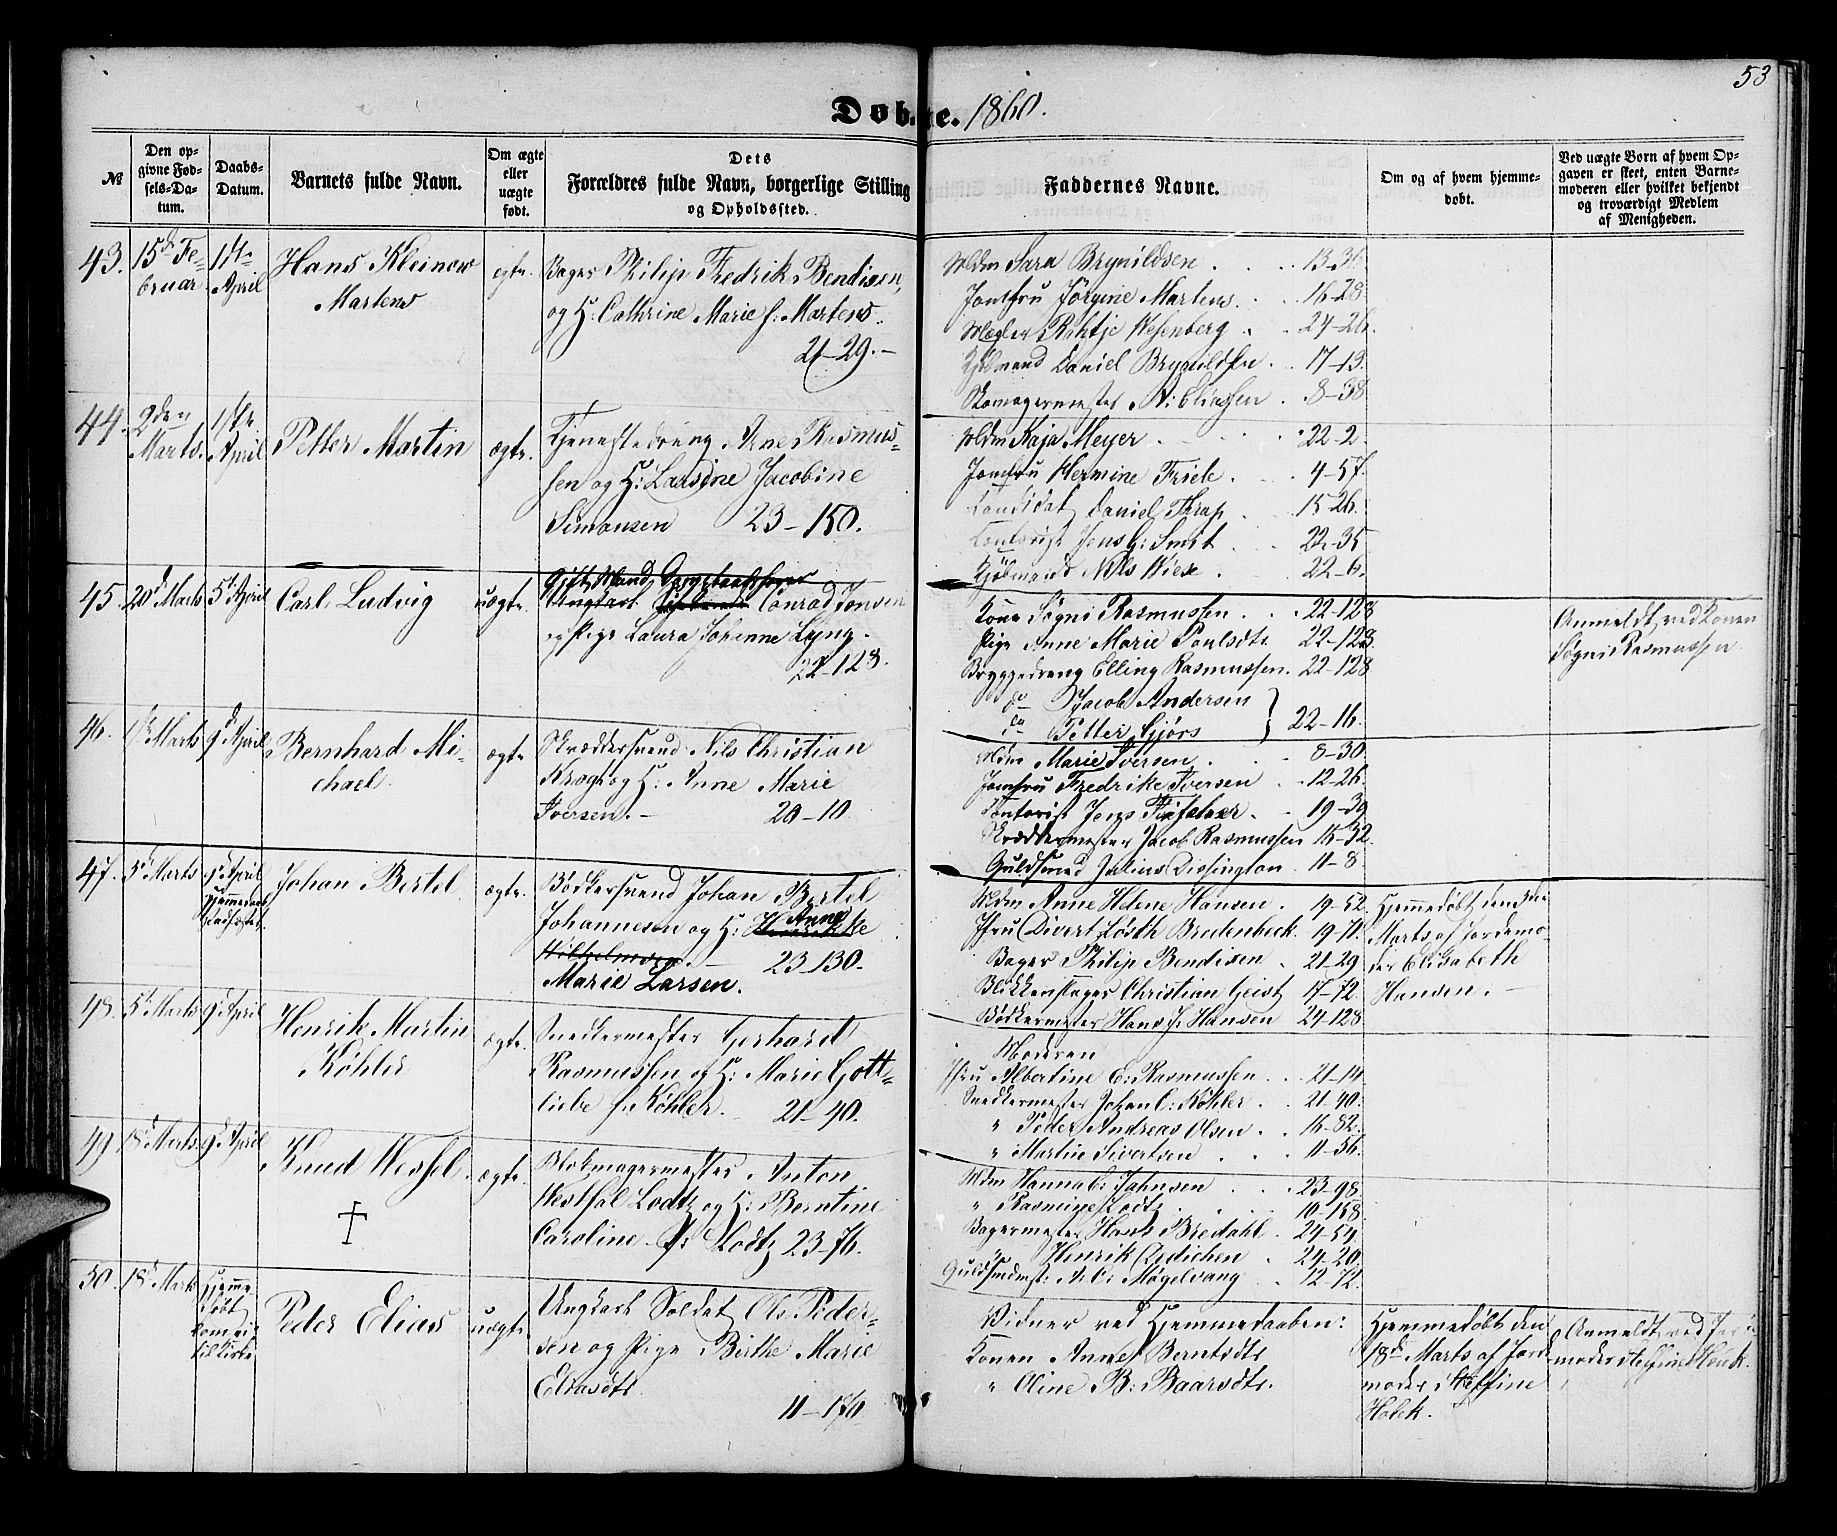 53
Døbte. 1860.
№
Den op-
givne Fød-
sels-Da-
tum.
Daabs-
Datum.
Barnets fulde Navn.
Om ægte
eller
uægte
født.
Dets
Forældres fulde Navn, borgerlige Stilling
og Opholdssted.
Faddernes Navne.
Om og af hvem hjemme-
døbt.
Ved uægte Børn af hvem Op-
gaven er skeet, enten Barne-
moderen eller hvilket bekjendt
og troværdigt Medlem
af Menigheden.
43. 15d Fe-
bruar
1ste
April
Hans Kleinow
Martens
egte.
Bager Philip Fredrik Bendixen,
og H: Cathrine Marie f: Martens.
21-29.-
Mdm Sara Brynildsen . . . 13-36.
Jomfru Jørgine Martens. . . 16-28
Mægler Rohtje Wesenberg . . 24-26.
Kjøbmand Daniel Brynildsen . 17-13.
Skomagermester A: Eliassen . 8-38
44. 2den
Marts.
1ste
April
Petter Martin
ægte.
Tjenestedreng Arne Rasmus-
sen og H: Larsine Jacobine
Simonsen 23-150.
Mdm Kaja Meyer . . . 22-2.
Jomfru Hermine Friele . . 4-57.
Candidat Daniel Thrap . 15-26.
Contorist Jens G: Smit . . 22-35
Kjøbmand Nils Wiese . . 22-6.
45. 20d Marts 5t April Carl Ludvig
uægte.
Gift Mand
Ungkarl Conrad Jensen
og Pige Laura Johanne Lyng.
22-128.
Kone Søgni Rasmussen . . 22-128
Pige Anne Marie Poulsdtr 22-128.
Bryggedreng Elling Rasmussen. 22-128
do Jacob Andersen
do Petter Gjørs } 22-16.
Anmeldt ved Konen
Søgni Rasmussen
46. Marts 9d April Bernhard Mi-
chael.
ægte
Skræddersvend Nils Christian
Krogh og H: Anne Marie
Iversen. - 20-10
Mdm Marie Iversen . . 8-30
Jomfru Fredrike Iversen . . 12-26.
Contorist Jens . . 19-39
Skræddermester Jacob Rasmussen 15-32.
Guldsmed Julius Dissington . 11-8
47. 5d Marts 9d April
Hjemmedaab
stadfæstet.
Johan Bertel
ægte.
Bødkersvend Johan Bertel
Johannesen og H: Anne
Marie Larsen.
23-130.
Mdm Anne Helene Hansen . 19-52.
Jfru Divert Løsth Bredenbeck. 19-71.
Bager Philip Bendixen . 21-29
Blikkenslager Christian Geist 17-72.
Bødkermester Hans J: Hansen 24-128
Hjemmedøbt den
Marts af Jordemo-
der Elisabeth
Hansen. -
48. 5t Marts 9d April Henrik Martin
Køhler
ægte.
Snedkermester Gerhard
Rasmussen og H: Marie Gott-
liebe f: Køhler. 21-40.
Moderen
Jfru Albertine E: Rasmussen . . 21-14
Snedkermester Johan C: Køhler . . 21-40.
" Peder Andreas Olsen . . 16-82.
" Martin Sivertsen . . . 11-56.
49 18d Marts 9d April
Knud Wessel.
†
ægte.
Blokmagermester Anton
Westfal Lodtz og H: Berntine
Caroline f: Lodtz 23-76.
Mdm Hanna C: Johnsen . . 23-98.
" Rasmine Lodtz . . . 10-158
Bagermester Hans Bredahl . 24-54.
" Henrik Oedichen . 24-20.
Guldsmedmst: A: C: Møgelvang . 12-72.
50. 18d Marts Hjemme-
døbt
kom ei
til Kirke
Peder Elias
uægte
Ungkarl Soldat Ole Peder-
sen og Pige Birthe Marie
Eliasdtr
11-170
Vidner ved Hjemmedaaben:
Konen Anne Berntsdtr
" Oline B: Baarsdtr.
Hjemmedøbt den
18d Marts af Jorde-
moder Steffine
Holck.
Anmeldt ved Jorde-
moder Steffine Holck.